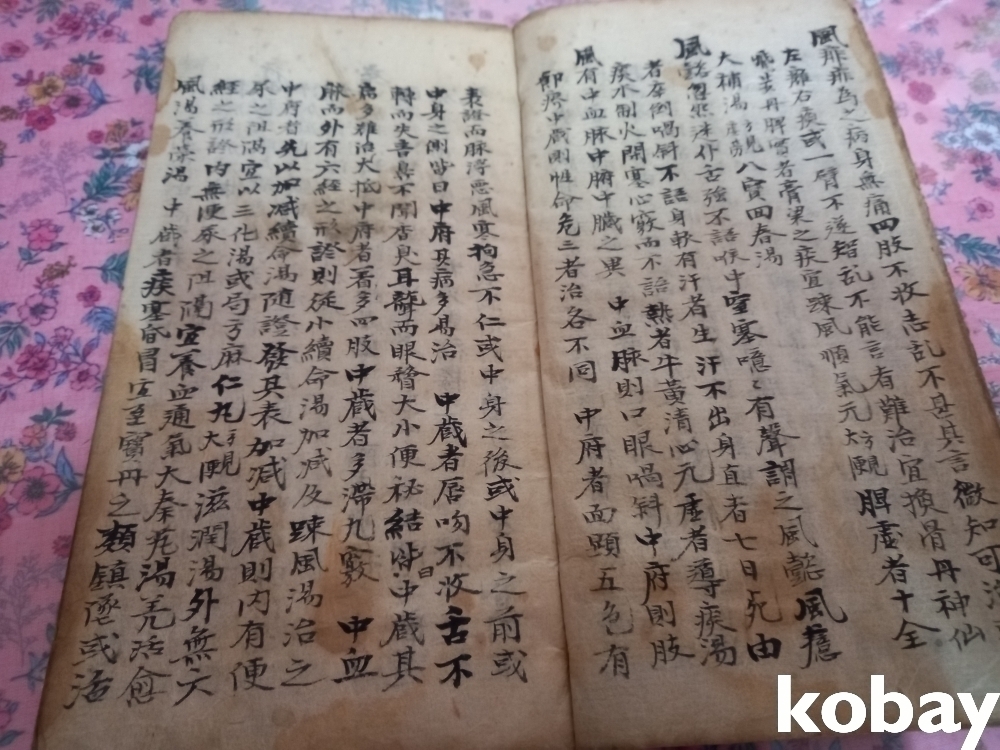 風痱痱為之病身無痛四肢不收志乱不甚其言微知可治
左癱右瘓或一臂不遂智乱不能言者難治宜換骨丹神仙
飛步丹脾胃者膏粱之疾宜踈風順氣元方大颫脾虛者十全
大補湯方見 八寶四春湯
風懿忽然迷仆舌強不語喉中窒塞噫〻有聲謂之風懿風癔
者卒倒喎斜不語身軟有汗者生汗不出身直者七日死由
痰不制火閉塞心竅而不語熱者牛黃清心元虛者導痰湯
風有中血脉中腑中臟之異 中血脉則口眼喎斜中府則肢
節癈中臟則性命危三者治各不同 中府者面顕五色有
表證而脉浮惡風寒拘急不仁或中身之後或中身之前或
中身之側皆曰中府其病多易治 中臓者唇吻不收舌不
轉而失音鼻不聞香臭耳聾而眼瞀大小便秘結皆曰中臓其
病多難治大抵中府者着多四肢中臓者多滯九竅 中血
脉而外有六經之形證則從小續命湯加减及踈風湯治之
中府者先以加减續命湯隨證發其表加减中臓則内有便
尿之阻隔宜以三化湯或局方麻仁丸方大颫滋潤湯外無六
經之形證内無便尿之阻隔宜養血通氣大秦艽湯羌活愈
風湯養榮湯 中臓者痰塞昏冒宜至寶丹之類鎮墜或活